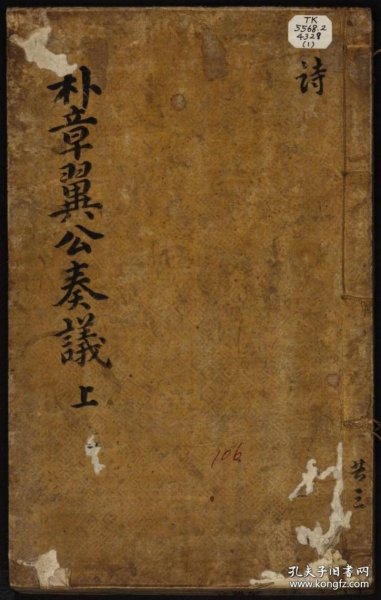 TK
5568.2
4329
(1)
詩
朴章翼公奏議 上
106
共三
孔夫子旧书网
www.kongfz.com